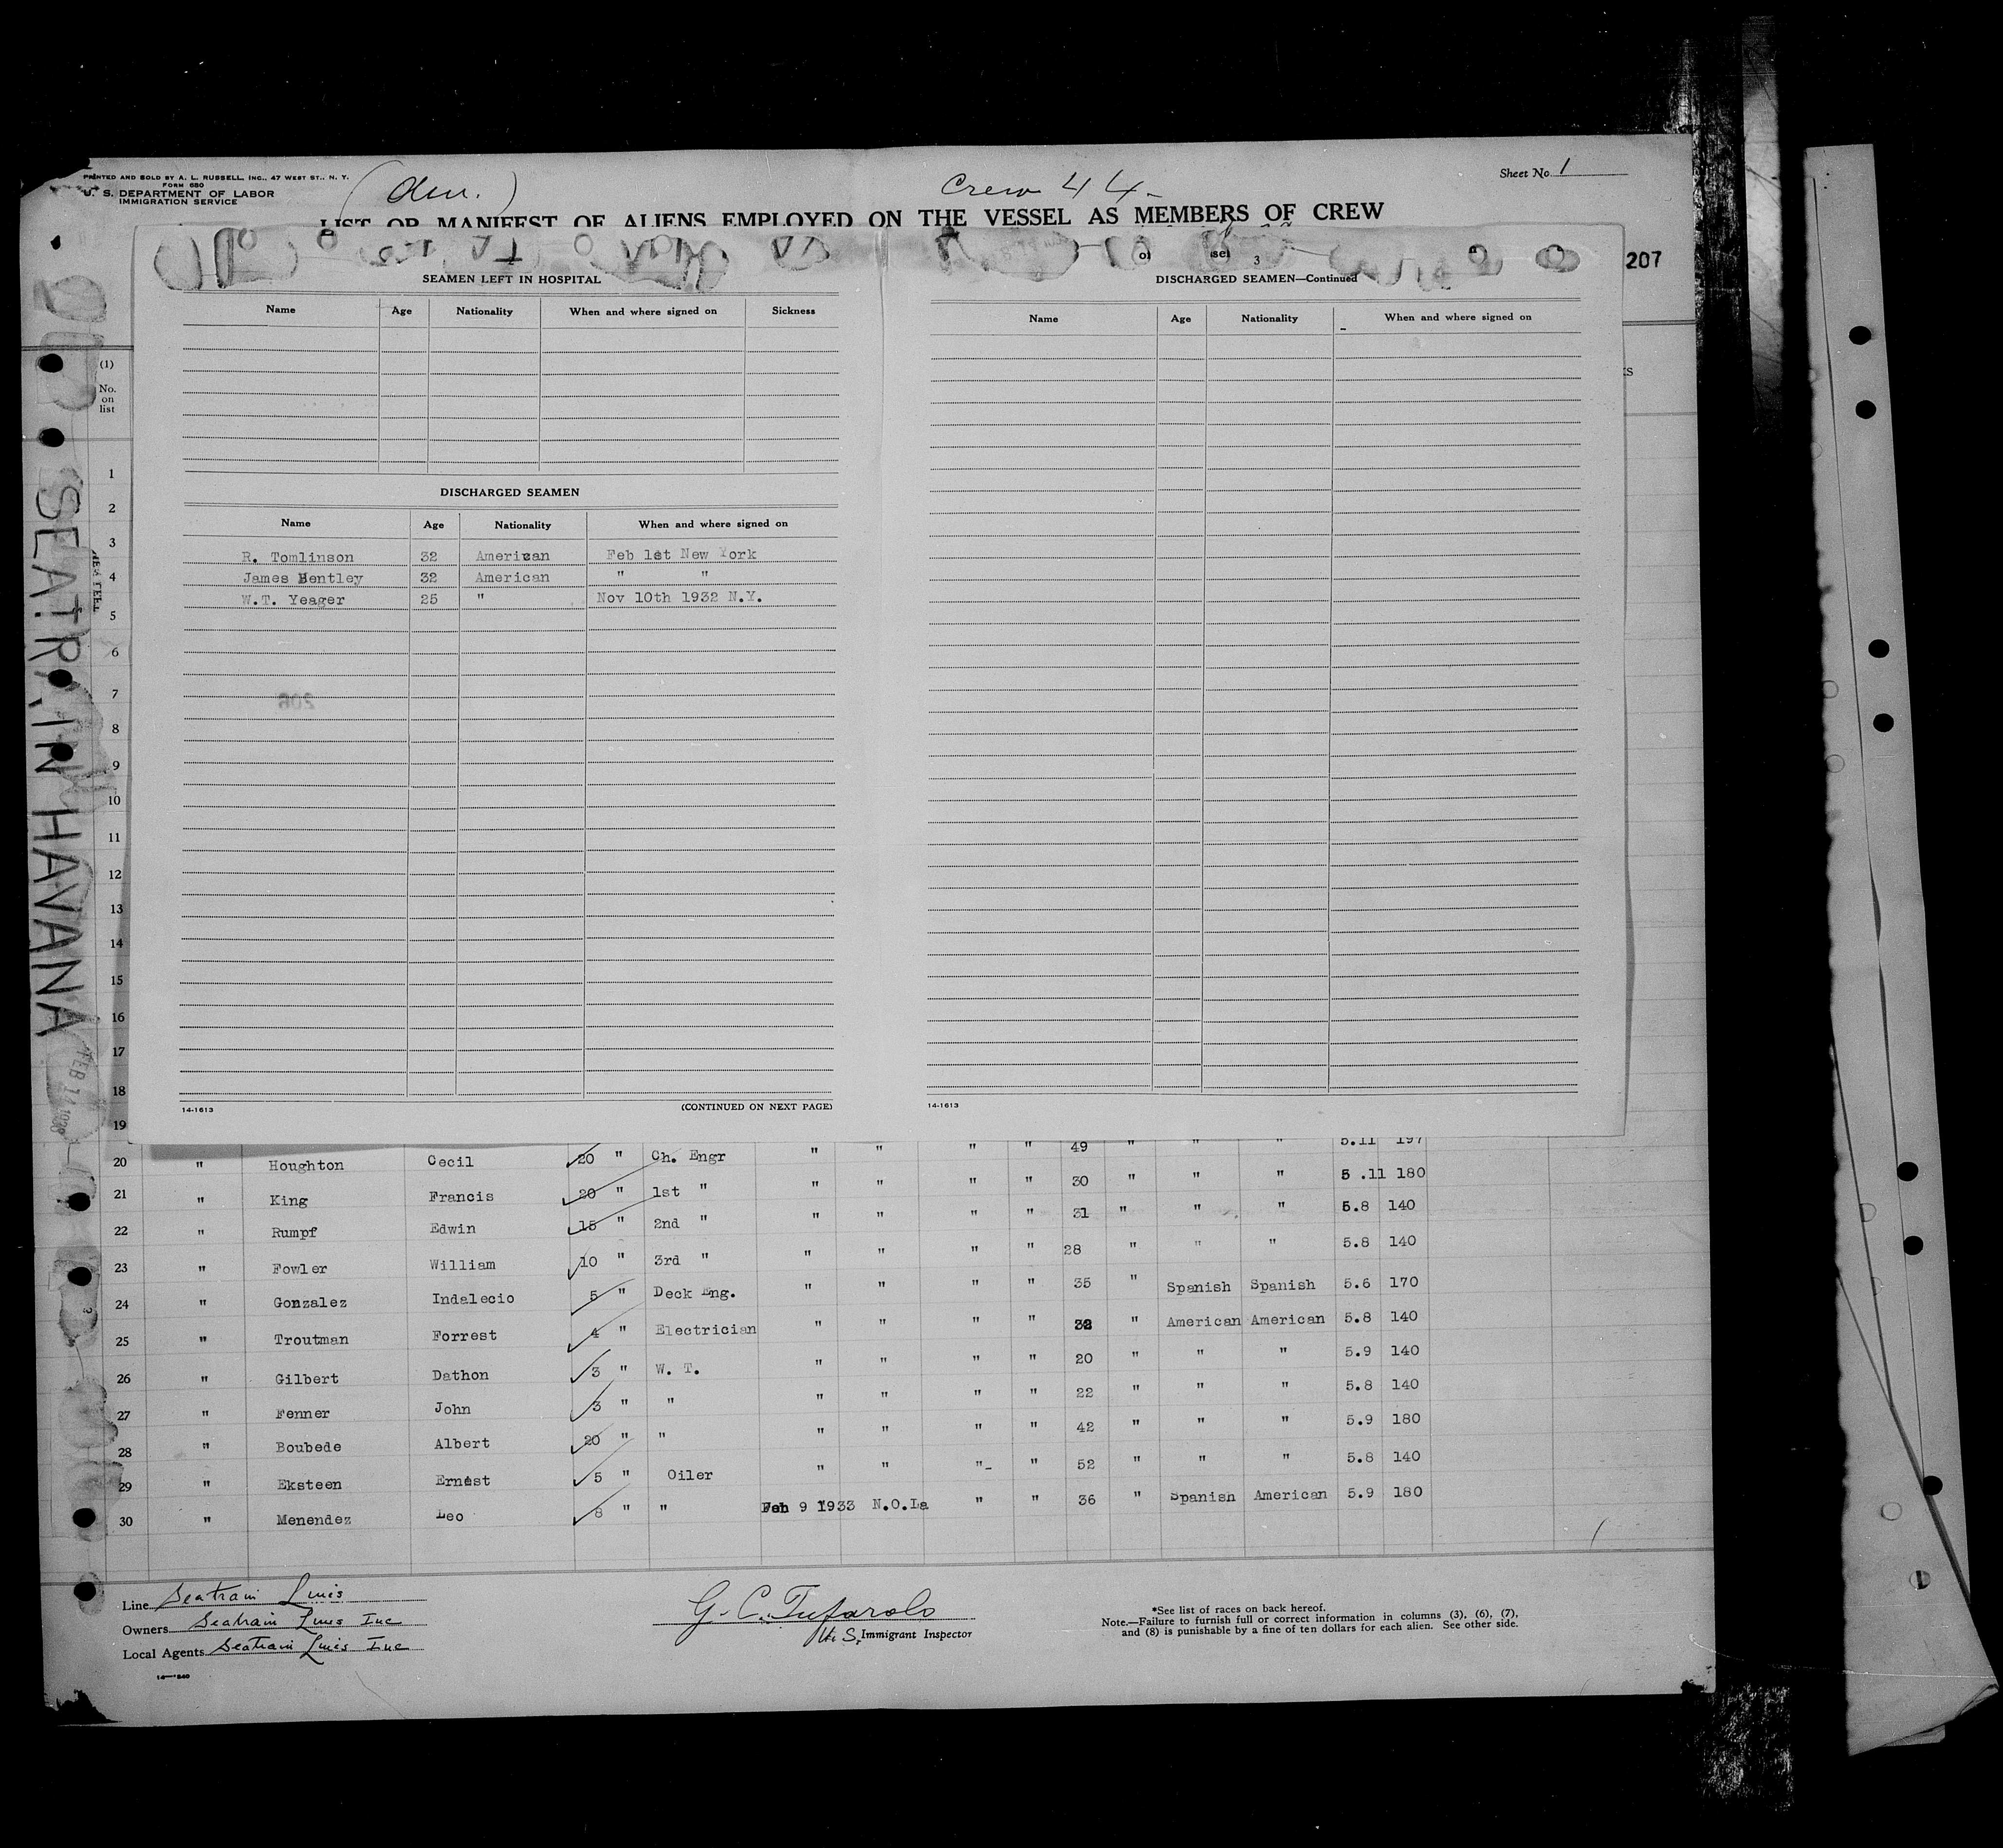 PRINTED AND SOLD BY A. L. RUSSELL, INC., 47 WEST ST., N. Y.
FORM 680
U. S. DEPARTMENT OF LABOR
IMMIGRATION SERVICE
Crew 44
Sheet No. 1
LIST OR MANIFEST OF ALIENS EMPLOYED ON THE VESSEL AS MEMBERS OF CREW
207
SEAMEN LEFT IN HOSPITAL
Name Age Nationality When and where signed on Sickness
DISCHARGED SEAMEN
Name Age Nationality When and where signed on
R. Tomlinson 32 American Feb 1st New York
James Bentley 32 American " "
W.T. Yeager 25 " Nov 10th 1932 N.Y.
206
14-1613 (CONTINUED ON NEXT PAGE)
3
DISCHARGED SEAMEN—Continued
Name Age Nationality When and where signed on
14-1613
(1)
No.
on
list
1
2
3
4
5
6
7
8
9
10
11
12
13
14
15
16
17
18
19
SEATRAIN HAVANA
49 " " " 5.11 197
20 " Houghton Cecil 20 " Ch. Engr " " " " 30 " " " 5 .11 180
21 " King Francis 20 " 1st " " " " " 31 " " " 5.8 140
22 " Rumpf Edwin 15 " 2nd " " " " " 28 " " " 5.8 140
23 " Fowler William 10 " 3rd " " " " " 35 " Spanish Spanish 5.6 170
24 " Gonzalez Indalecio 5 " Deck Eng. " " " " American American 5.8 140
25 " Troutman Forrest 4 " Electrician " " " " 20 " " " 5.9 140
26 " Gilbert Dathon 3 " W. T. " " " " 22 " " " 5.8 140
27 " Fenner John 3 " " " " " " 42 " " " 5.9 180
28 " Boubede Albert 20 " " " " " " 52 " " " 5.8 140
29 " Eksteen Ernest 5 " Oiler " " " " 36 " Spanish American 5.9 180
30 " Menendez Leo 8 " " Feb 9 1933 N.O.La
Line Seatrain Lines
Owners Seatrain Lines Inc
Local Agents Seatrain Lines Inc
G. C. Tufarolo
U. S. Immigrant Inspector
*See list of races on back hereof.
Note.—Failure to furnish full or correct information in columns (3), (6), (7),
and (8) is punishable by a fine of ten dollars for each alien. See other side.